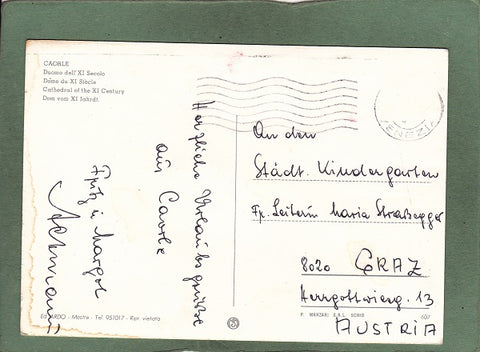 CAORLE
Duomo dell'XI Secolo
Dôme du XI Siècle
Cathedral of the XI Century
Dom vom XI Jahrdt.
Herzliche Urlaubsgrüße
aus Caorle
Fritz u. Margot
VENEZIA
An den
Städt. Kindergarten
Fr. Leiterin Maria Straßegger
8020 GRAZ
Herrgottwiesg. 13
AUSTRIA
ARDO - Mestre - Tel. 951017 - Rip. vietata
P. MARZARI S.R.L. SCHIO
607